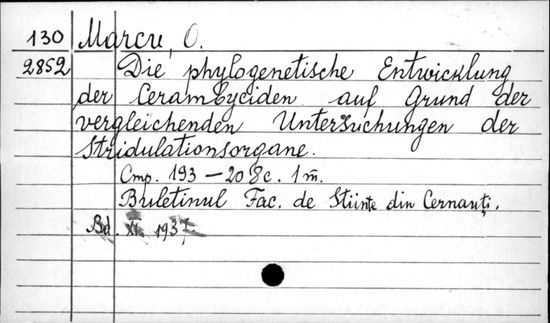 130 Marcu, O.
2852 Die phylogenetische Entwicklung
der Cerambyciden auf Grund der
vergleichenden Untersuchungen der
Stridulationsorgane.
Стр. 193 – 208 с. 1 т̄.
Buletinul Fac. de Stiinte din Cernauți.
Bd. XI. 1937